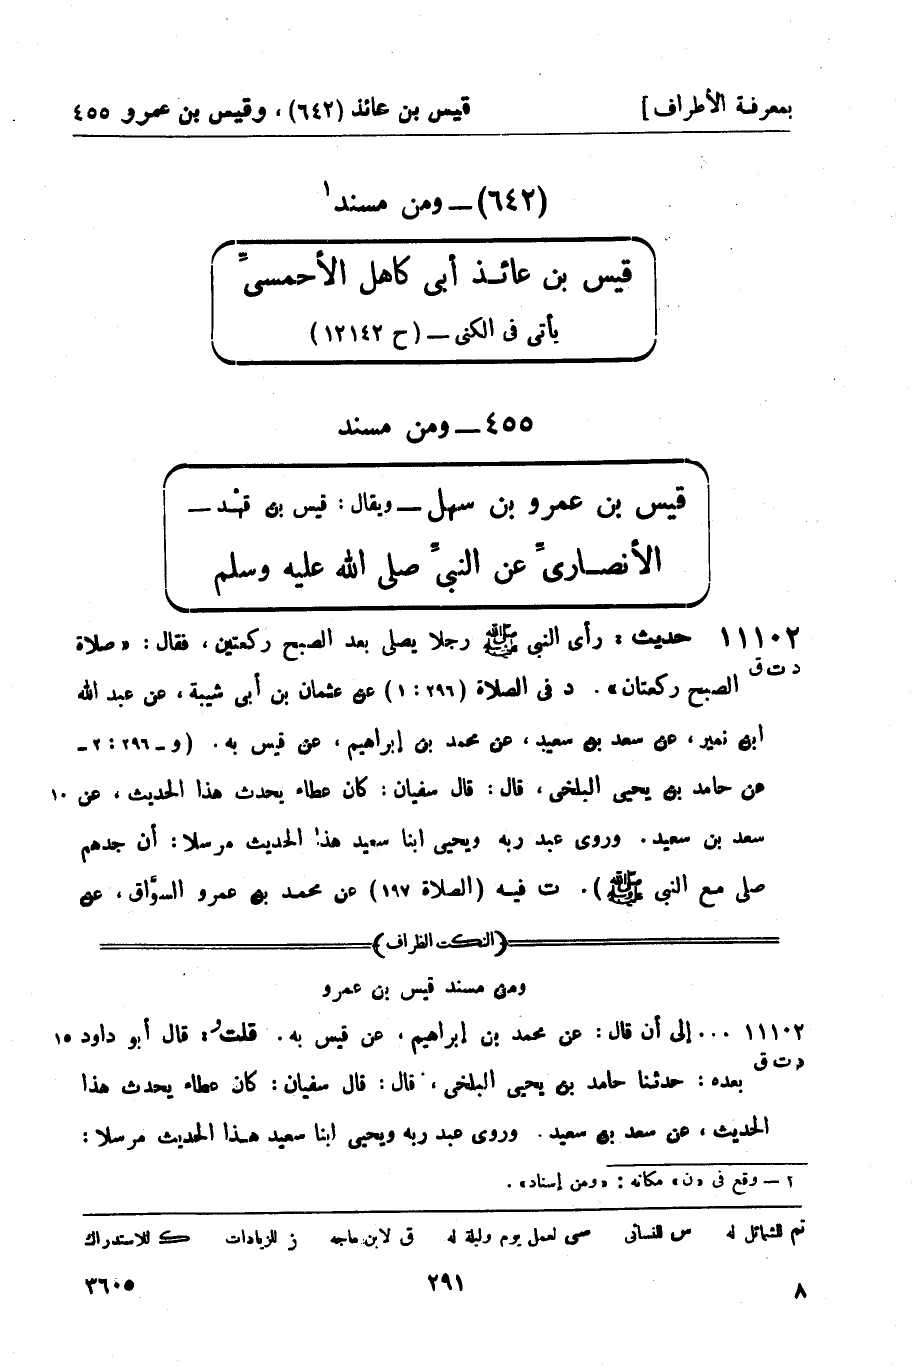 بمعرفة الأطراف] قيس بن عائذ (٦٤٢)، وقيس بن عمرو ٤٥٥
(٦٤٢) ــ ومن مسند١
قيس بن عائـذ أبى كاهل الأحمسىّ
يأتى فى الكنى ــ (ح ١٢١٤٢)
٤٥٥ ــ ومن مسند
قيس بن عمرو بن سهل ــ ويقال: قيس بن قهْد ــ
الأنصـارىّ عن النبىّ صلى الله عليه وسلم
١١١٠٢ حديث: رأى النبى ﷺ رجلا يصلى بعد الصبح ركعتين، فقال: «صلاة
د ت ق الصبح ركعتان». د فى الصلاة (٢٩٦: ١) عن عثمان بن أبى شيبة، عن عبد الله
ابن نمير، عن سعد بن سعيد، عن محمد بن إبراهيم، عن قيس به. (و ــ ٢٩٦: ٢ ــ
عن حامد بن يحيى البلخى، قال: قال سفيان: كان عطاء يحدث هذا الحديث، عن ١٠
سعد بن سعيد. وروى عبد ربه ويحيى ابنا سعيد هذا الحديث مرسلا: أن جدهم
صلى مع النبى ﷺ). ت فيـه (الصلاة ١٩٧) عن محمد بن عمرو السوَّاق، عن
(النكت الظراف)
ومن مسند قيس بن عمرو
١١١٠٢ ... إلى أن قال: عن محمد بن إبراهيم، عن قيس به. قلتُ: قال أبو داود ١٥
د ت ق بعده: حدثنا حامد بن يحيى البلخى، قال: قال سفيان: كان عطاء يحدث هذا
الحديث، عن سعد بن سعيد. وروى عبد ربه ويحيى ابنا سعيد هـذا الحديث مرسلا:
٢ ــ وقع فى «ن» مكانه: «ومن إسناد».
تم للشمائل له س للنسائى سى لعمل يوم وليلة له ق لابن ماجه ز للزيادات ك للاستدراك
٨ ٢٩١ ٣٦٠٥